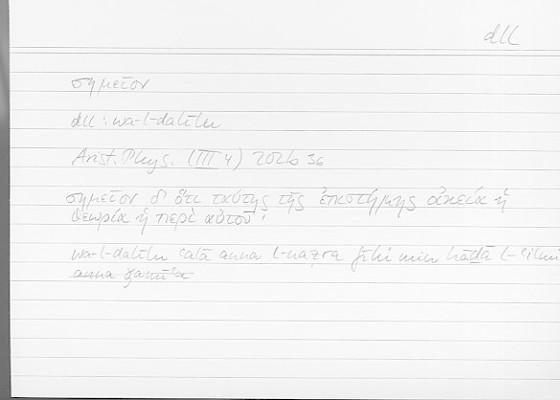 dll
σημεῖον
dll : wa-l-dalīlu
Arist. Phys. (III 4) 202b 36
σημεῖον δ' ὅτι ταύτης τῆς ἐπιστήμης οἰκεία ἡ
θεωρία ἡ περὶ αὐτοῦ :
wa-l-dalīlu ʿalā anna l-naẓra fīhi min hāḏā l-ʿilmi
anna ǧamīʿa